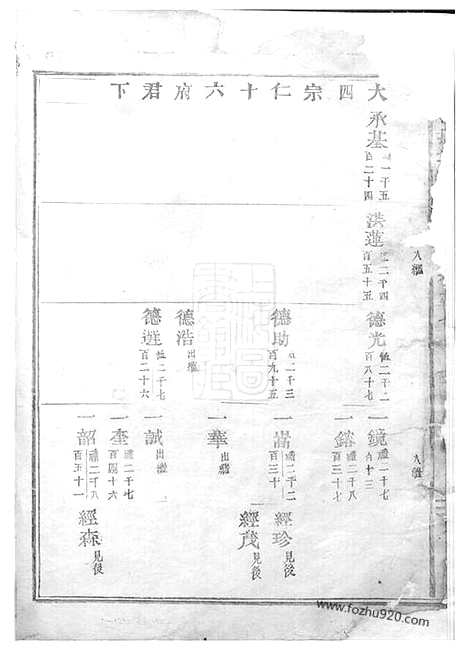 大四宗仁十六府君下
承基
一千五
百二十四
洪蓮
二千四
百五十五
德光
二千二
百八十七
德助
二千三
百九十五
德浩出繼
德遊
二千七
百二十六
一鏡
一千七
百十三
一鎔
二千八
百三十
一嵩
二千二
百三十
一華出繼
一誠出繼
一奎
二千七
百四十六
一韶
二千八
百五十一
經珍見後
經茂見後
經森見後
入繼
入繼
www.fozhu920.com